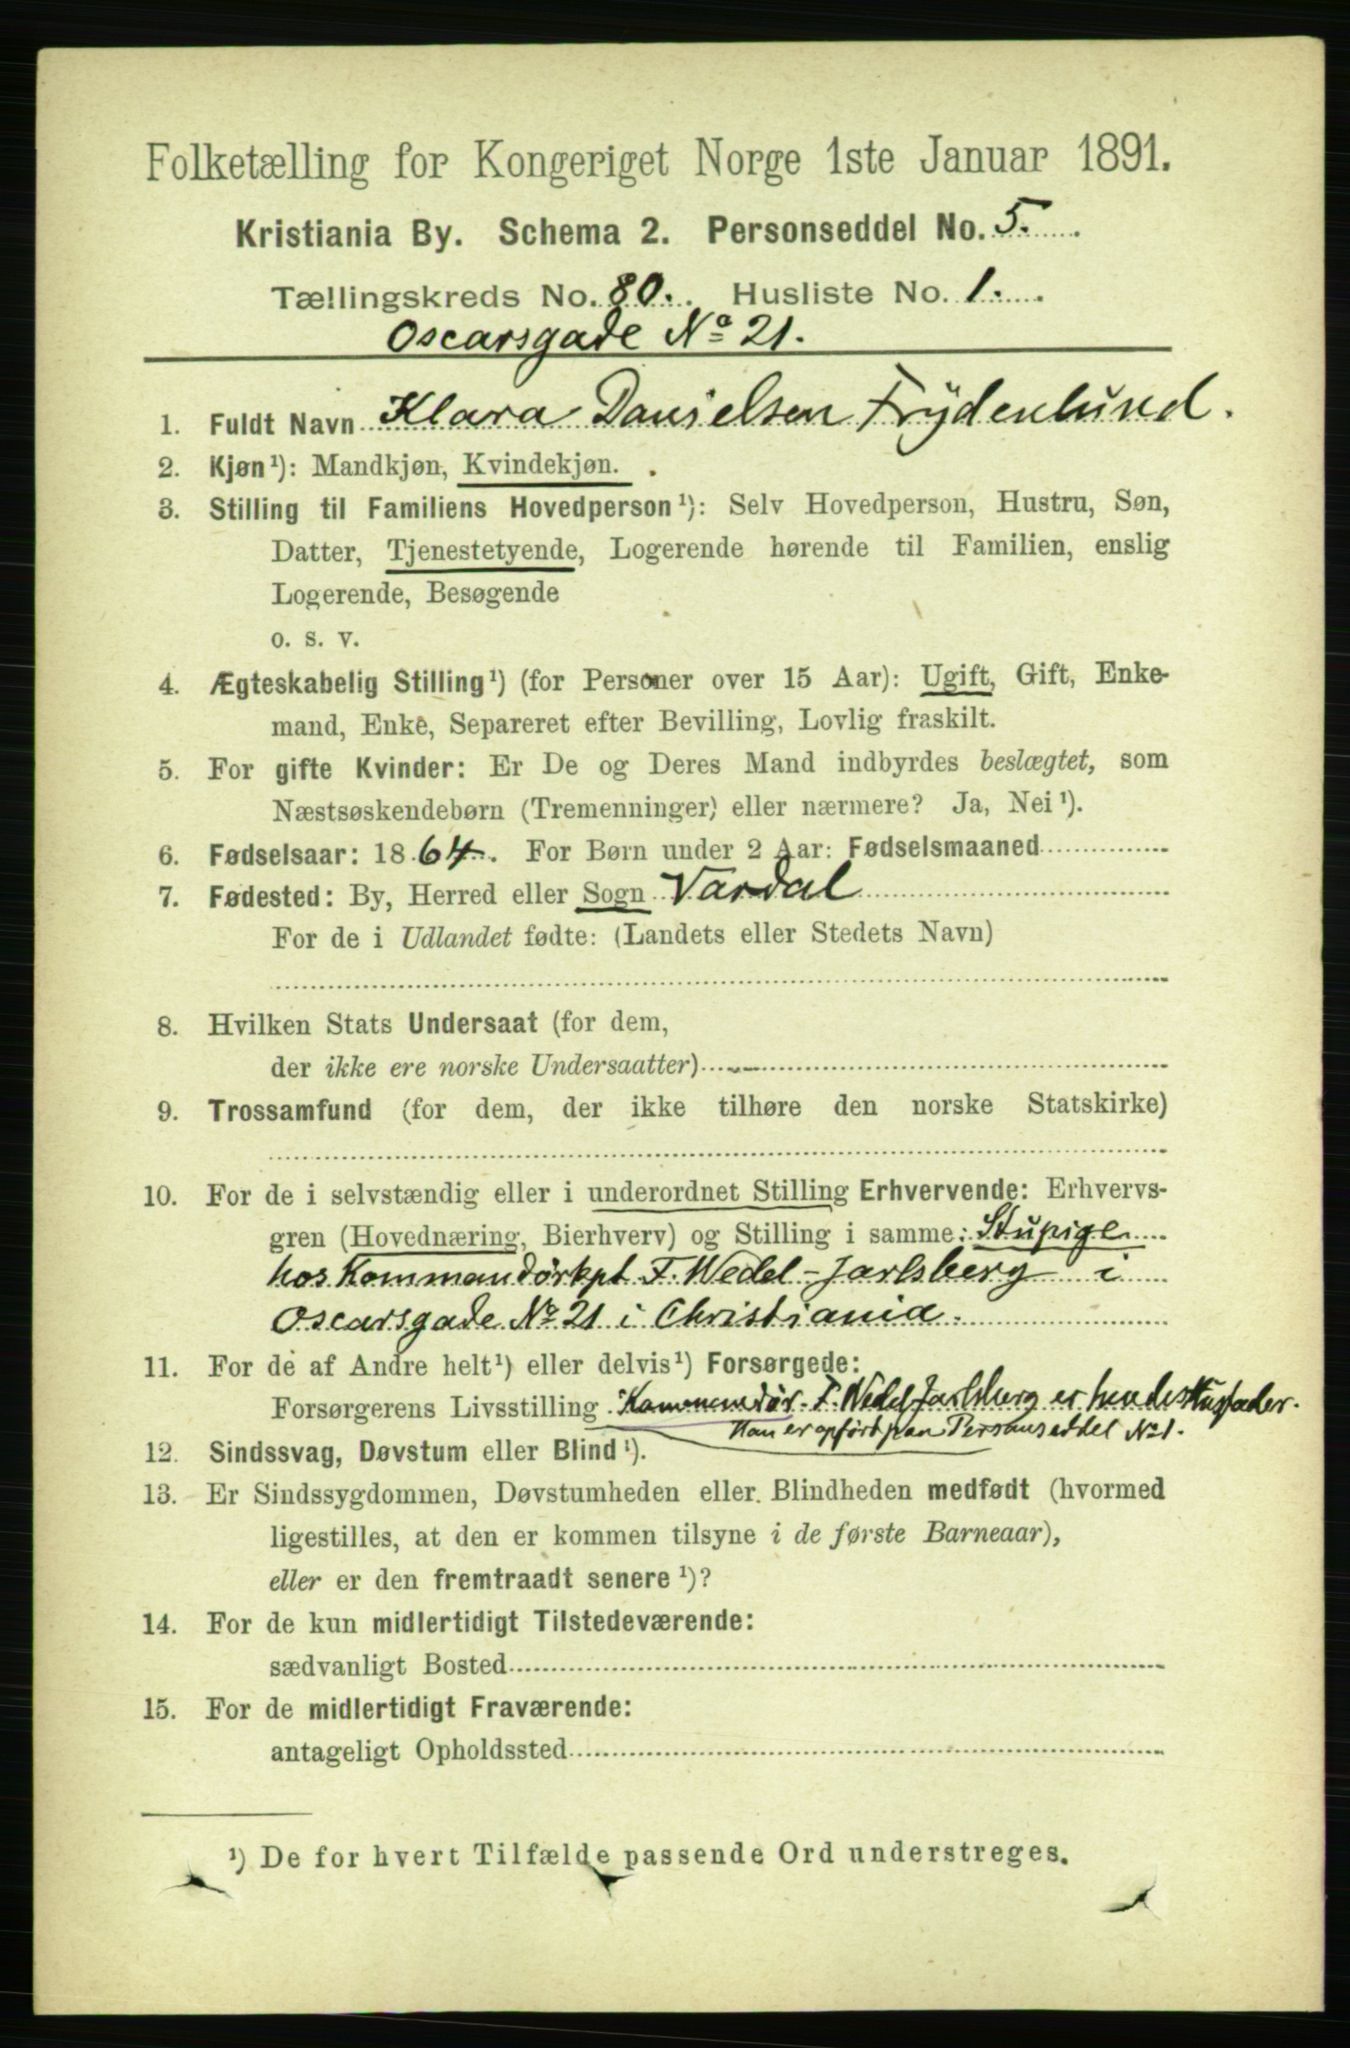 Folketælling for Kongeriget Norge 1ste Januar 1891.
Kristiania By. Schema 2. Personseddel No. 5.
Tællingskreds No. 80. Husliste No. 1.
Oscarsgade No 21.
1. Fuldt Navn Klara Danielsen Frydenlund.
2. Kjøn¹): Mandkjøn, Kvindekjøn.
3. Stilling til Familiens Hovedperson¹): Selv Hovedperson, Hustru, Søn,
Datter, Tjenestetyende, Logerende hørende til Familien, enslig
Logerende, Besøgende
o. s. v.
4. Ægteskabelig Stilling¹) (for Personer over 15 Aar): Ugift, Gift, Enke-
mand, Enke, Separeret efter Bevilling, Lovlig fraskilt.
5. For gifte Kvinder: Er De og Deres Mand indbyrdes beslægtet, som
Næstsøskendebørn (Tremenninger) eller nærmere? Ja, Nei¹).
6. Fødselsaar: 1864. For Børn under 2 Aar: Fødselsmaaned
7. Fødested: By, Herred eller Sogn Vardal
For de i Udlandet fødte: (Landets eller Stedets Navn)
8. Hvilken Stats Undersaat (for dem,
der ikke ere norske Undersaatter)
9. Trossamfund (for dem, der ikke tilhøre den norske Statskirke)
10. For de i selvstændig eller i underordnet Stilling Erhvervende: Erhvervs-
gren (Hovednæring, Bierhverv) og Stilling i samme: Stupige
hos Kommandørkpt F. Wedel-Jarlsberg i
Oscarsgade No 21 i Christiania.
11. For de af Andre helt¹) eller delvis¹) Forsørgede:
Forsørgerens Livsstilling Kommandør. F. Wedel Jarlsberg er hendes Husfader.
Han er opført paa Personseddel No 1.
12. Sindssvag, Døvstum eller Blind¹).
13. Er Sindssygdommen, Døvstumheden eller. Blindheden medfødt (hvormed
ligestilles, at den er kommen tilsyne i de første Barneaar),
eller er den fremtraadt senere¹)?
14. For de kun midlertidigt Tilstedeværende:
sædvanligt Bosted
15. For de midlertidigt Fraværende:
antageligt Opholdssted
¹) De for hvert Tilfælde passende Ord understreges.